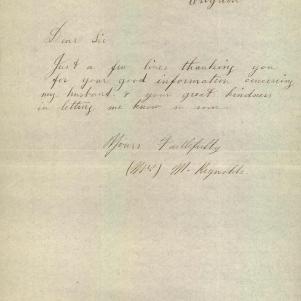 Dear Sir
Just a few lines thanking you
for your good information concerning
my husband & your great kindness
in letting me know so soon
Yours Faithfully
(Mrs) M. Reynolds